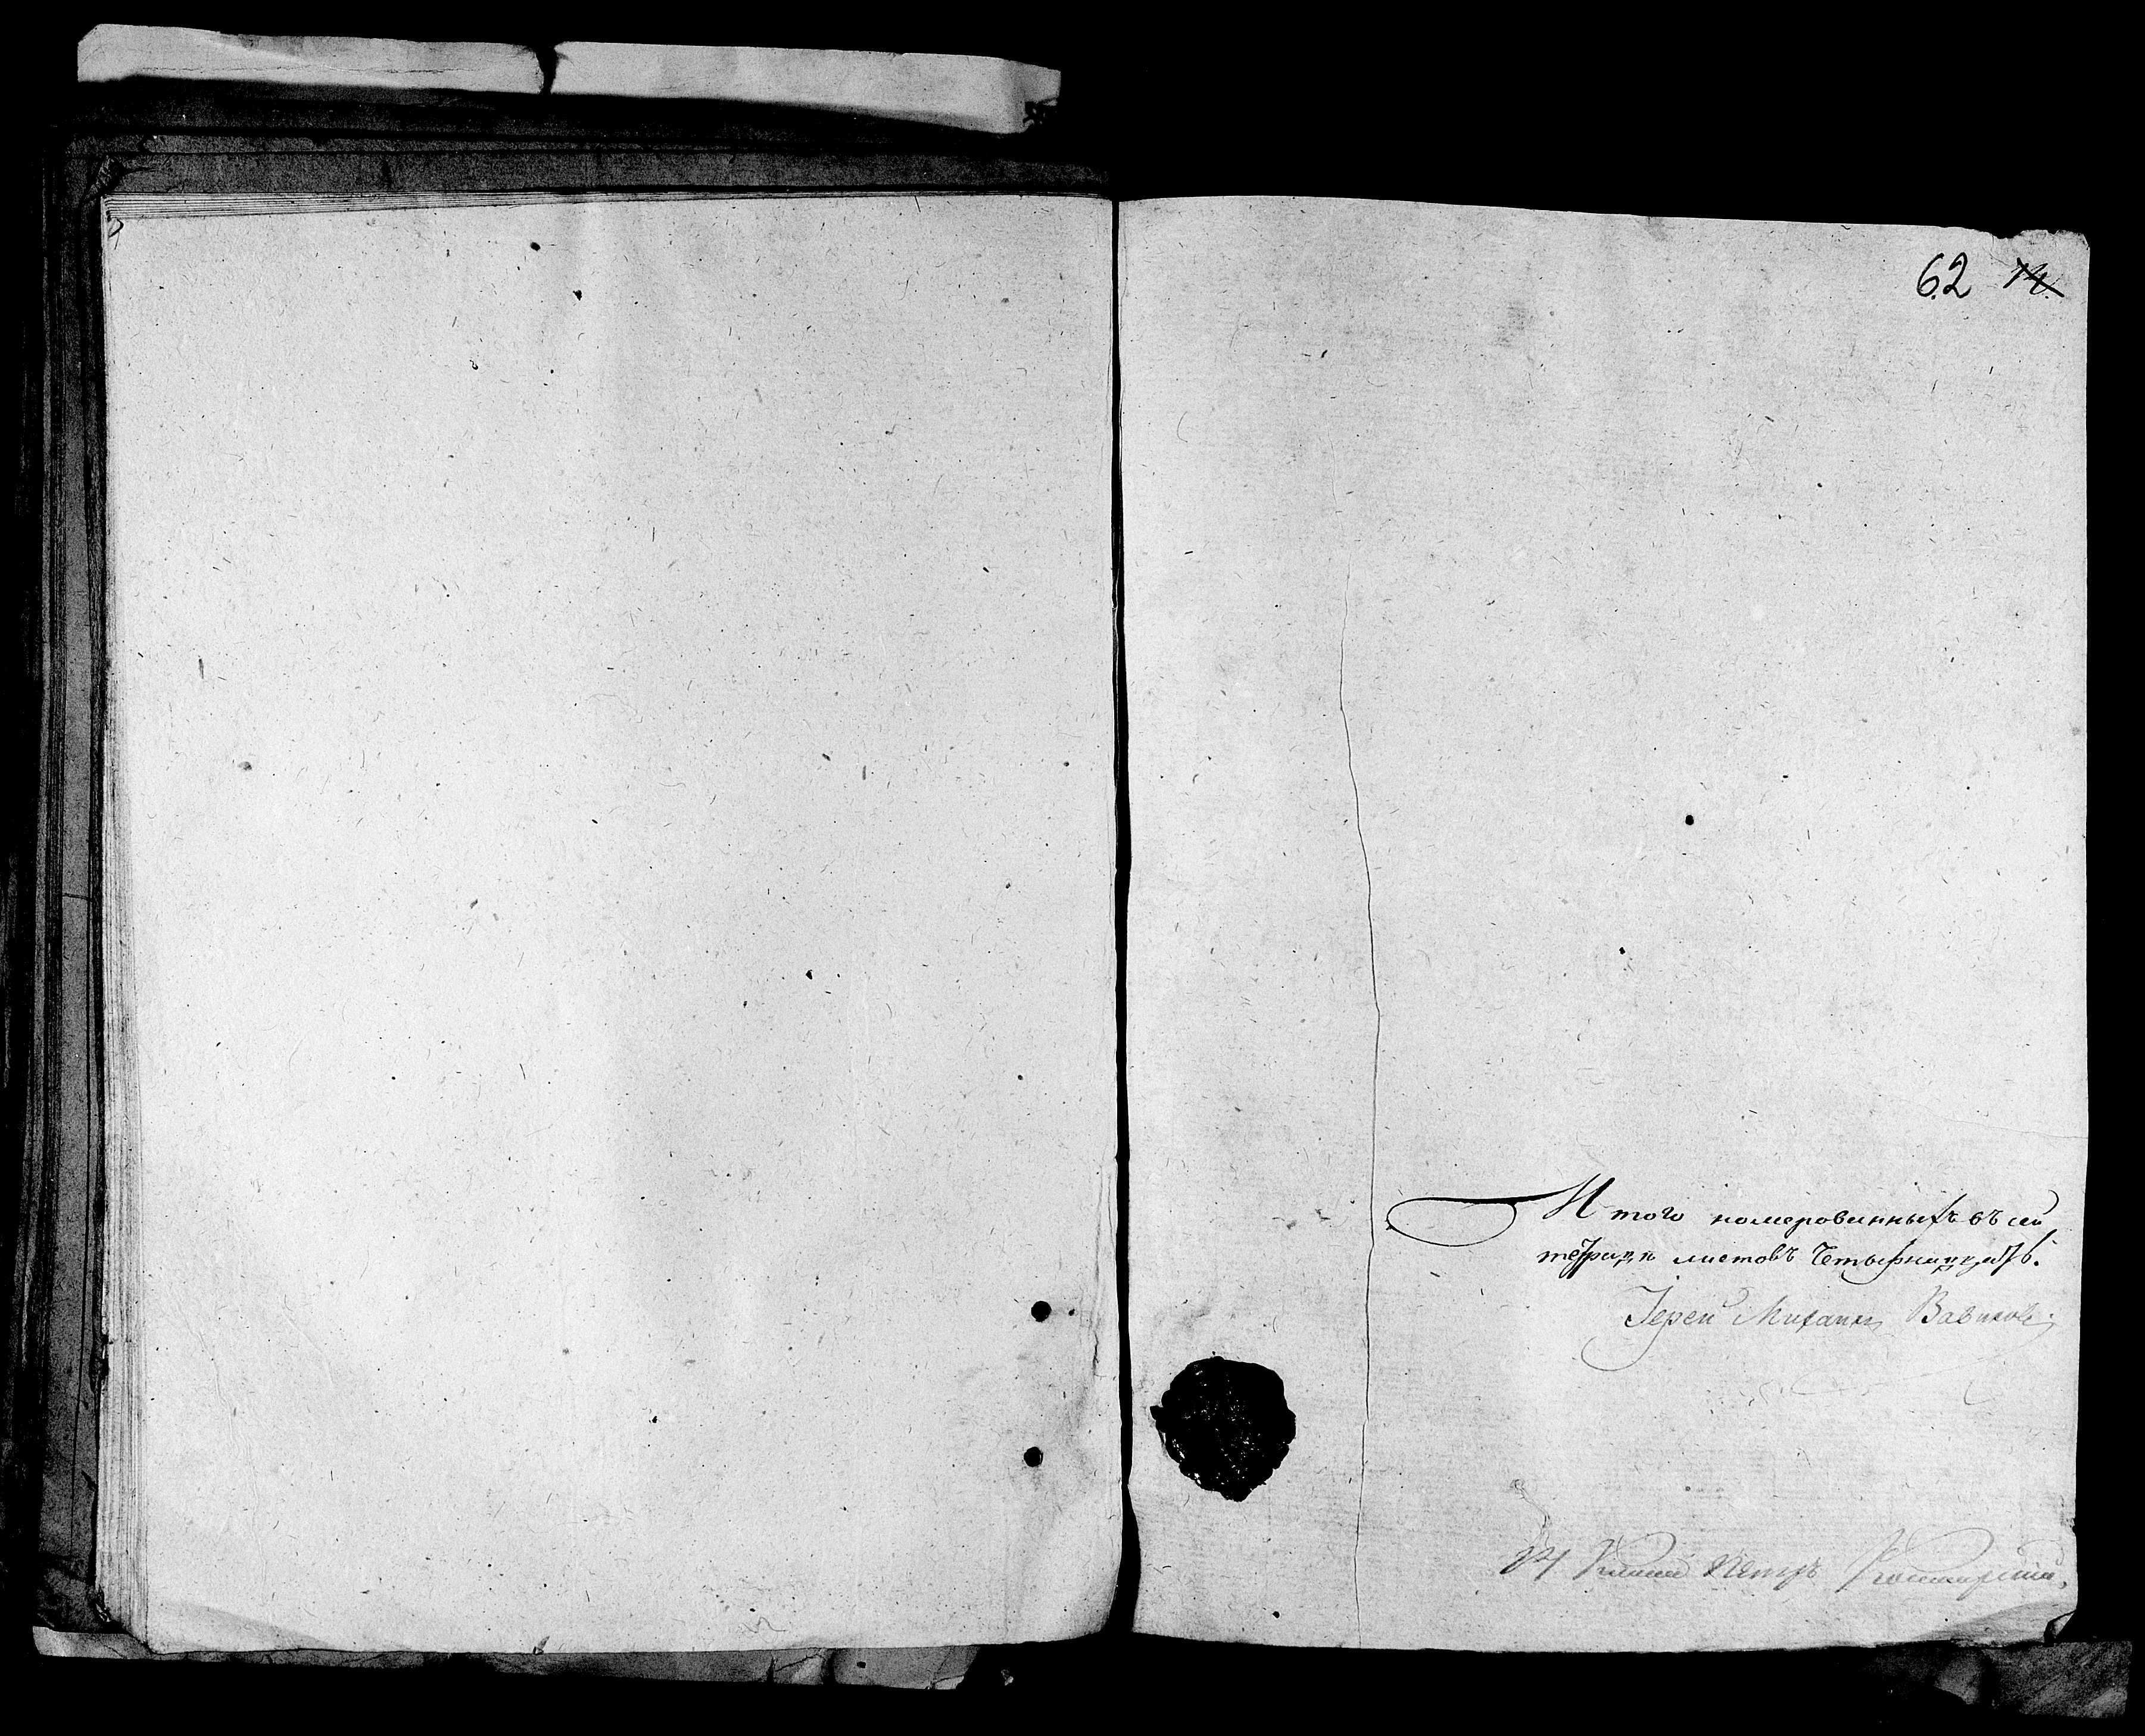 62 14.
Итого номерованныхъ въ сей
тетради листовъ четырнадцать.
Іерей Михаилъ Вавиловъ
Петръ